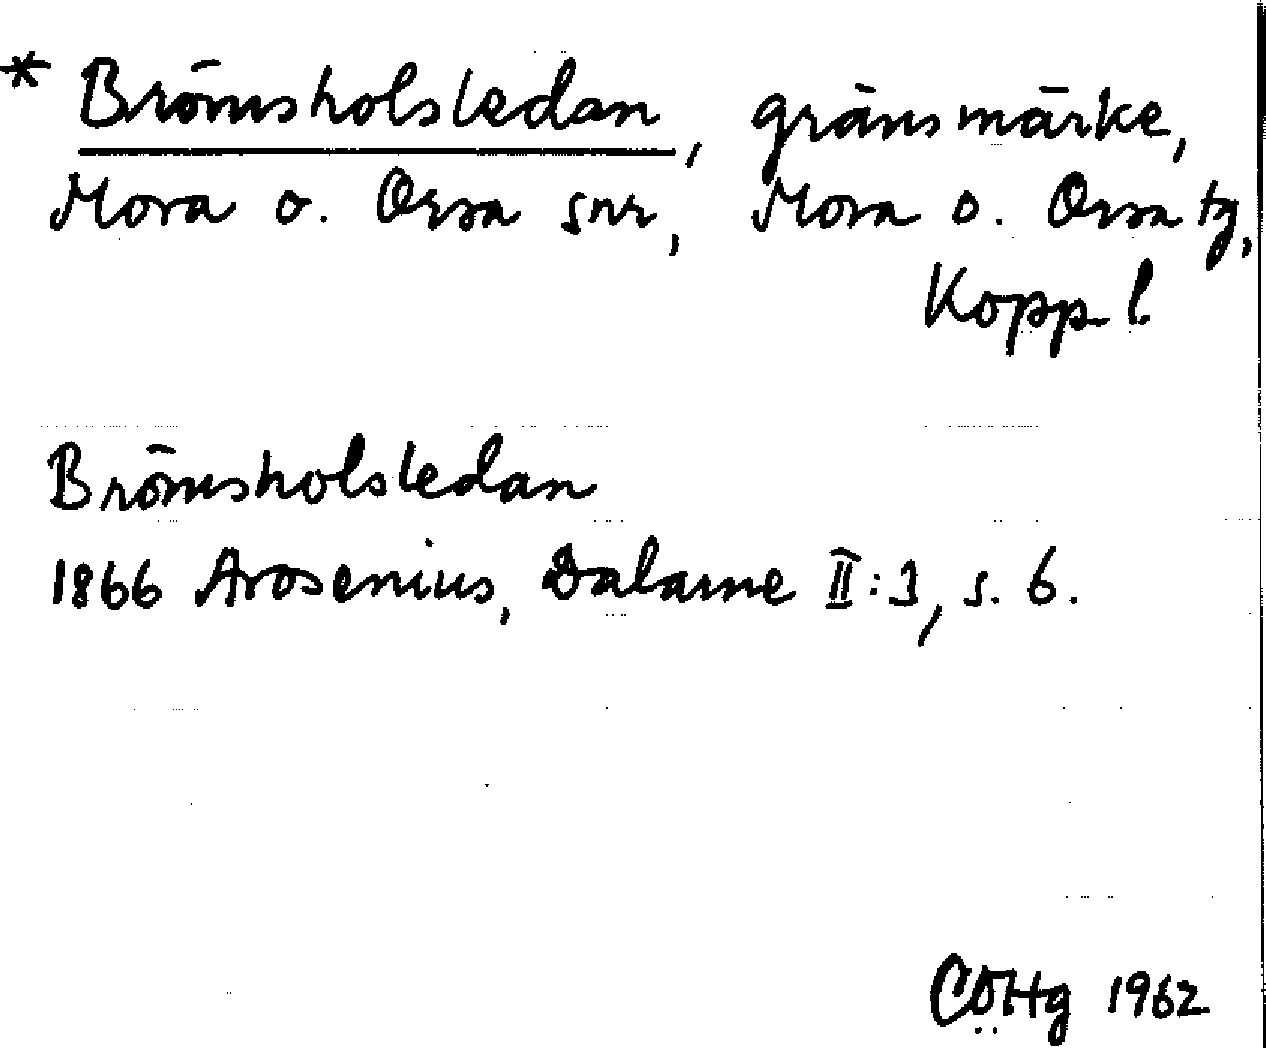 * Brömsholsledan, gränsmärke,
Mora o. Orsa snr, Mora o. Orsa tg,
Kopp. l.
Brömsholsledan
1866 Arosenius, Dalarne II:3, s. 6.
CÖHg 1962